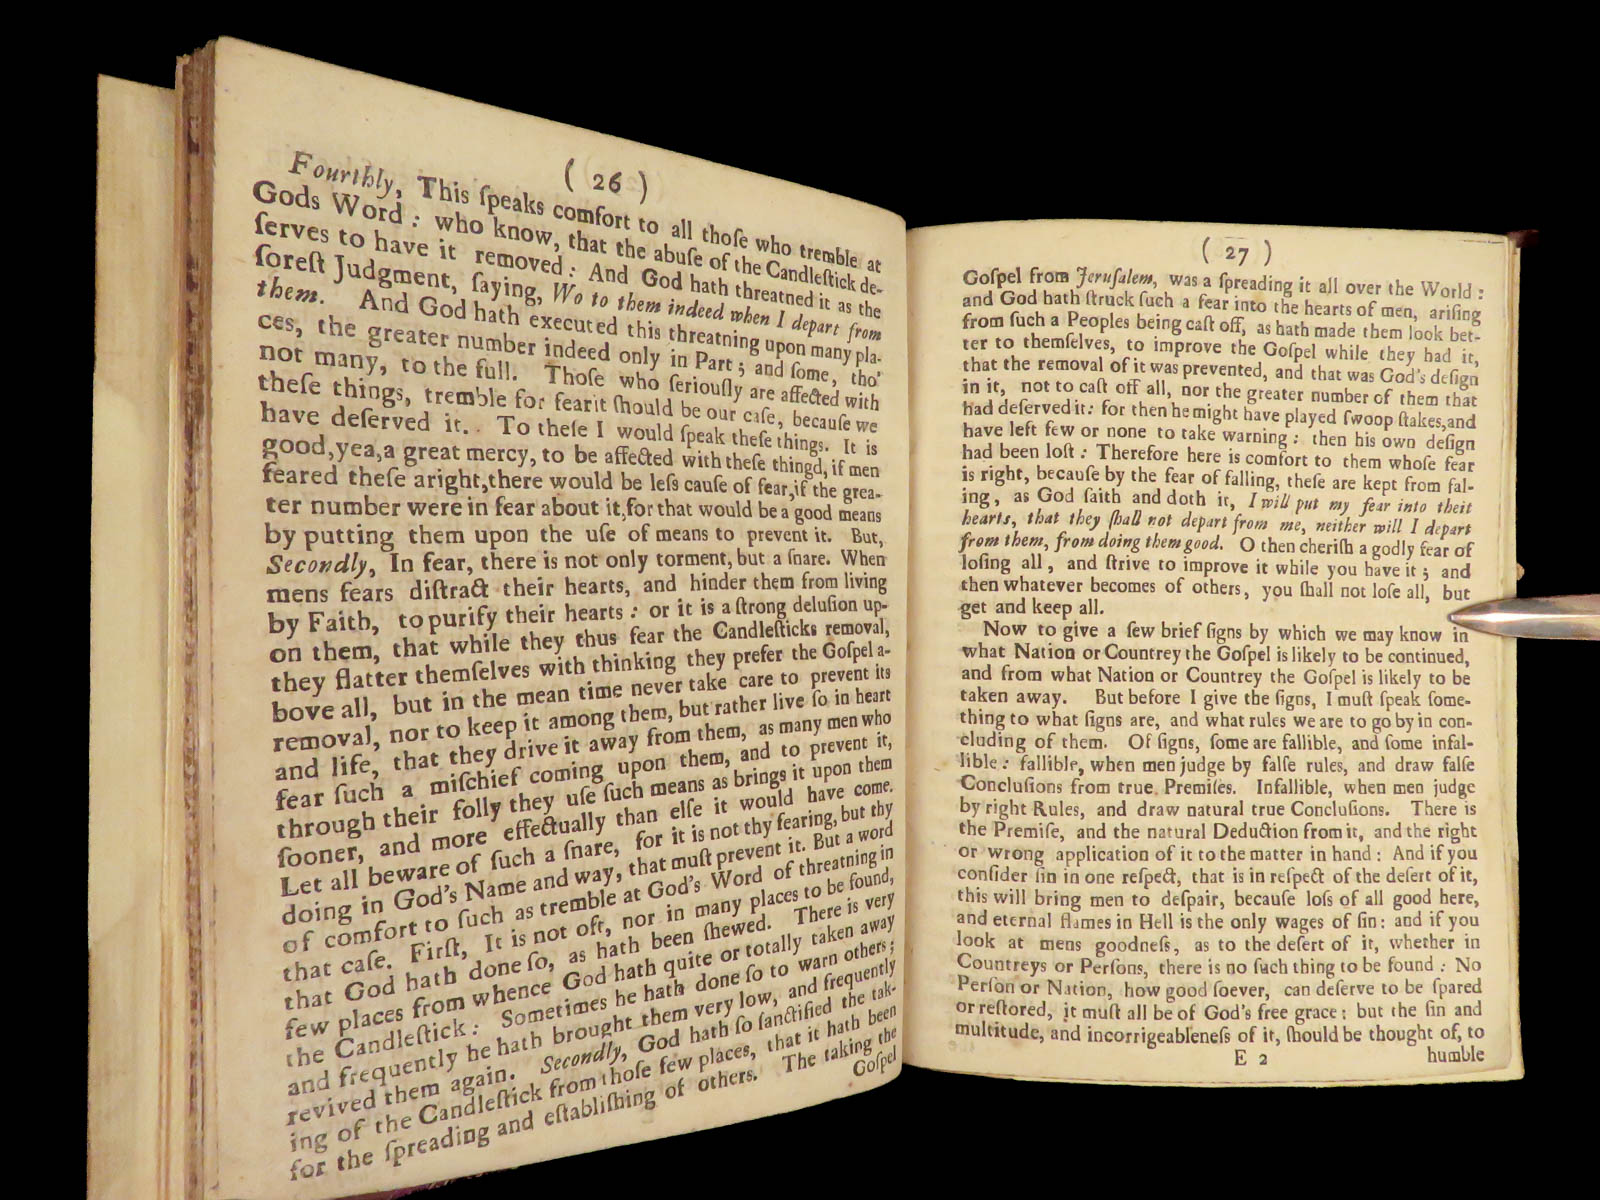 ( 26 )
Fourthly, This ſpeaks comfort to all thoſe who tremble at
Gods Word : who know, that the abuſe of the Candleſtick de-
ſerves to have it removed : And God hath threatned it as the
ſoreſt Judgment, ſaying, Wo to them indeed when I depart from
them. And God hath executed this threatning upon many pla-
ces, the greater number indeed only in Part ; and ſome, tho'
not many, to the full. Thoſe who ſeriouſly are affected with
theſe things, tremble for fear it ſhould be our caſe, becauſe we
have deſerved it. To theſe I would ſpeak theſe things. It is
good, yea, a great mercy, to be affected with theſe thingd, if men
feared theſe aright, there would be leſs cauſe of fear, if the grea-
ter number were in fear about it, for that would be a good means
by putting them upon the uſe of means to prevent it. But,
Secondly, In fear, there is not only torment, but a ſnare. When
mens fears diſtract their hearts, and hinder them from living
by Faith, to purify their hearts : or it is a ſtrong deluſion up-
on them, that while they thus fear the Candleſticks removal,
they flatter themſelves with thinking they prefer the Goſpel a-
bove all, but in the mean time never take care to prevent its
removal, nor to keep it among them, but rather live ſo in heart
and life, that they drive it away from them, as many men who
fear ſuch a miſchief coming upon them, and to prevent it,
through their folly they uſe ſuch means as brings it upon them
ſooner, and more effectually than elſe it would have come.
Let all beware of ſuch a ſnare, for it is not thy fearing, but thy
doing in God's Name and way, that muſt prevent it. But a word
of comfort to ſuch as tremble at God's Word of threatning in
that caſe. Firſt, It is not oft, nor in many places to be found,
that God hath done ſo, as hath been ſhewed. There is very
few places from whence God hath quite or totally taken away
the Candleſtick : Sometimes he hath done ſo to warn others ;
and frequently he hath brought them very low, and frequently
revived them again. Secondly, God hath ſo ſanctified the tak-
ing of the Candleſtick from thoſe few places, that it hath been
for the ſpreading and eſtabliſhing of others. The taking the
Goſpel
( 27 )
Goſpel from Jeruſalem, was a ſpreading it all over the World :
and God hath ſtruck ſuch a fear into the hearts of men, ariſing
from ſuch a Peoples being caſt off, as hath made them look bet-
ter to themſelves, to improve the Goſpel while they had it,
that the removal of it was prevented, and that was God's deſign
in it, not to caſt off all, nor the greater number of them that
had deſerved it : for then he might have played ſwoop ſtakes, and
have left few or none to take warning : then his own deſign
had been loſt : Therefore here is comfort to them whoſe fear
is right, becauſe by the fear of falling, theſe are kept from fal-
ing, as God ſaith and doth it, I will put my fear into theit
hearts, that they ſhall not depart from me, neither will I depart
from them, from doing them good. O then cheriſh a godly fear of
loſing all, and ſtrive to improve it while you have it ; and
then whatever becomes of others, you ſhall not loſe all, but
get and keep all.
Now to give a few brief ſigns by which we may know in
what Nation or Countrey the Goſpel is likely to be continued,
and from what Nation or Countrey the Goſpel is likely to be
taken away. But before I give the ſigns, I muſt ſpeak ſome-
thing to what ſigns are, and what rules we are to go by in con-
cluding of them. Of ſigns, ſome are fallible, and ſome infal-
lible : fallible, when men judge by falſe rules, and draw falſe
Concluſions from true Premiſes. Infallible, when men judge
by right Rules, and draw natural true Concluſions. There is
the Premiſe, and the natural Deduction from it, and the right
or wrong application of it to the matter in hand : And if you
conſider ſin in one reſpect, that is in reſpect of the deſert of it,
this will bring men to deſpair, becauſe loſs of all good here,
and eternal flames in Hell is the only wages of ſin : and if you
look at mens goodneſs, as to the deſert of it, whether in
Countreys or Perſons, there is no ſuch thing to be found : No
Perſon or Nation, how good ſoever, can deſerve to be ſpared
or reſtored, it muſt all be of God's free grace : but the ſin and
multitude, and incorrigeableneſs of it, ſhould be thought of, to
E 2 humble